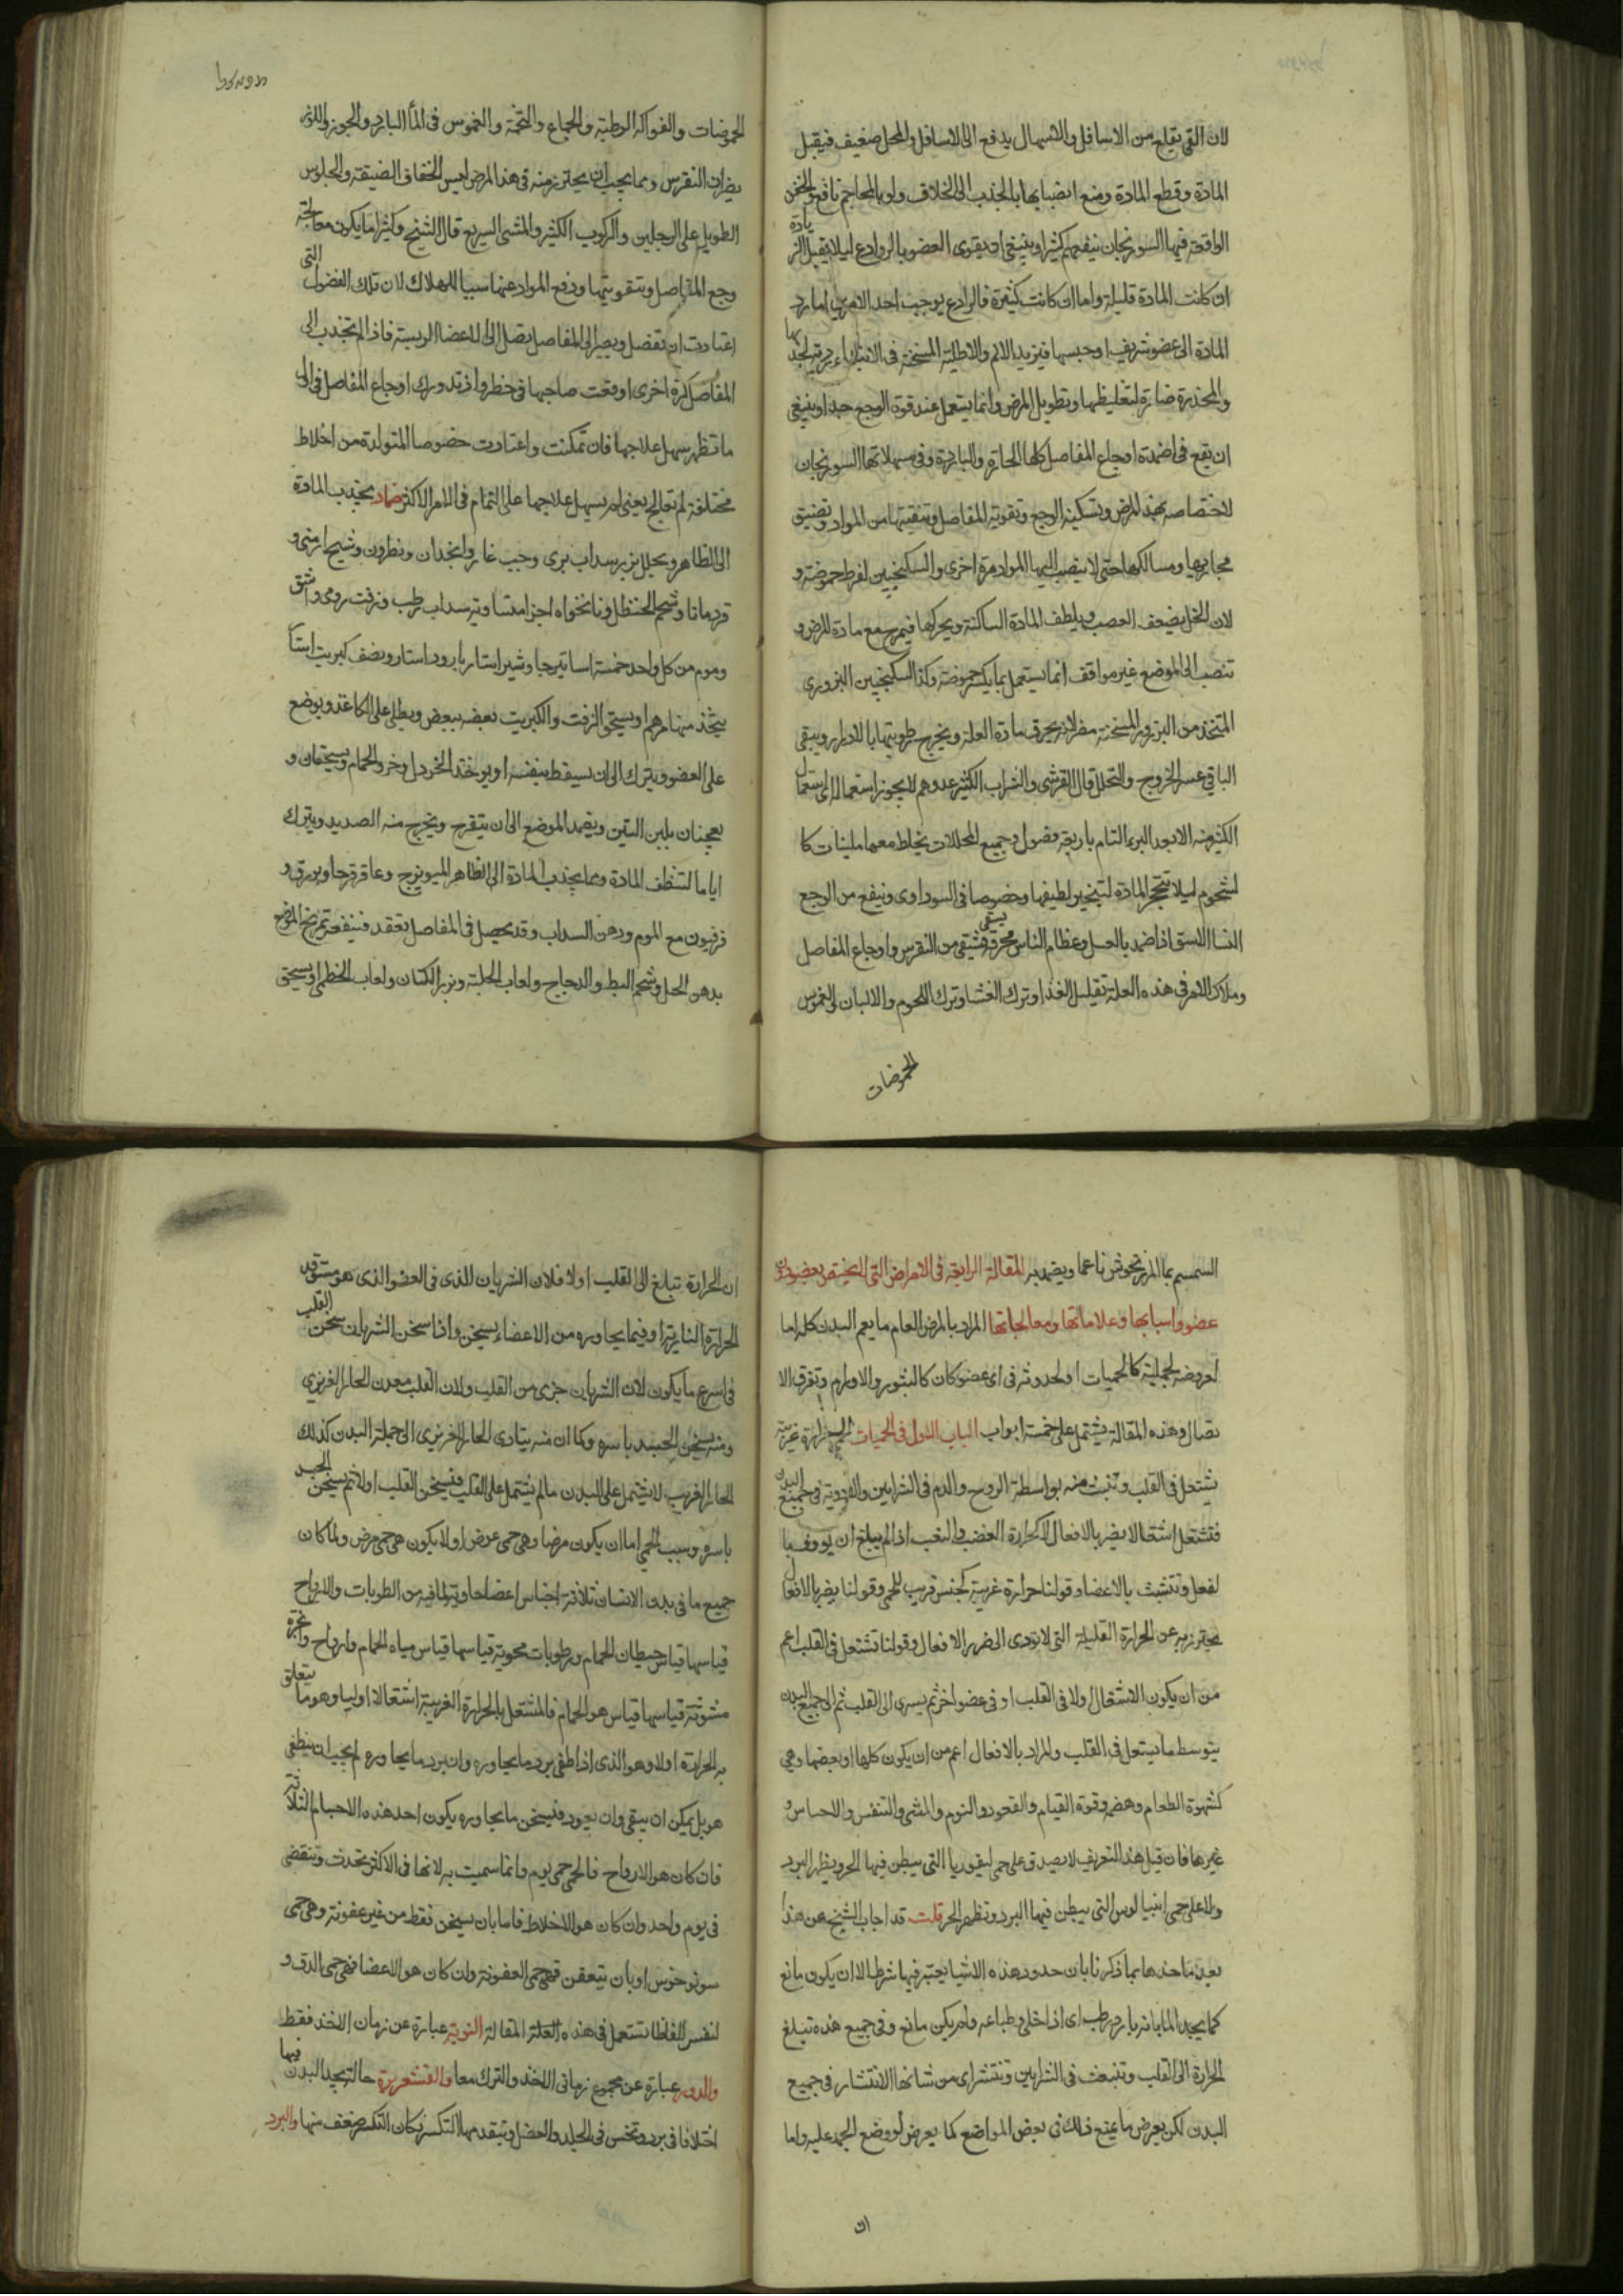 لان القي يقلع من الاسافل والاسهال يدفع الى الاسافل والمحل ضعيف فيقبل
المادة وقطع المادة ومنع انصبابها بالجذب الى الخلاف ولو بالمحاجم نافع والحقن
الواقعة فيها السورنجان ينفعهم كثيرا وينبغي ان يقوى العضو بالروادع ليلا يقبل الزيادة
ان كانت المادة قليلة واما ان كانت كثيرة فالرادع يوجب احد الامرين اما رد
المادة الى عضو شريف او حبسها فيزيد الالم والاطلية المسخنة في الابتداء رديئة لجذبها
والمخدرة ضارة لتغليظها وتطويل المرض وانما يستعمل عند قوة الوجع جدا وينبغي
ان يقع في اضمدة اوجاع المفاصل كلها الحارة والباردة وفي مسهلاتها السورنجان
لاختصاصه بهذا المرض وتسكينه الوجع وتقوية المفاصل وتنقيتها من المواد وتضييق
مجاريها ومسالكها حتى لا ينصب اليها المواد مرة اخرى والسكنجبين لفرط حموضته و
لان الخل يضعف العصب ويلطف المادة الساكنة ويحركها فيمرج مع مادة المرض و
تنصب الى الموضع غير موافق انما يستعمل بما يكسر حموضته وكذا السكنجبين البزوري
المتخذ من البزور المسخنة مضر لانه يحرق مادة العلة ويخرج رطوبتها بالادرار ويبقى
الباقي عسر الخروج والتحلل قال القرشي والشراب الكثير عدوهم لا يجوز استعماله الى استعمال
الكثير منه الا بعد البرء التام باربعة فصول وجميع المحللات يخلط معها ملينات كا
لشحوم ليلا تتحجر المادة لتبخير لطيفها وخصوصا في السوداوي وينفع من الوجع
النسا الاستق اذا ضمد بالعسل وعظام الناس محرقة يسقى فيشفي من النقرس واوجاع المفاصل
وملاك الامر في هذه العلة تقليل الغذا وترك العشا وترك اللحوم والالبان والغموس
الحموضات
الحموضات والفواكه الرطبة والجماع والتخمة والغموس في الماء البارد والجوز واللوز
يضران النقرس ومما يجب ان يحترز منه في هذا المرض لبس الخفاف الضيقة والجلوس
الطويل على الرجلين والركوب الكثير والمشي السريع قال الشيخ وكثيرا ما يكون معالجة
وجع المفاصل وتقويتها ودفع المواد عنها سببا للهلاك لان تلك الفضول التي
اعتادت ان تفصل ويصير الى المفاصل يصل الى الاعضا الرييسة فاذا لم تنجذب الى
المفاصل كرة اخرى اوقعت صاحبها في خطر واذ تدورك اوجاع المفاصل في اول
ما تظهر سهل علاجها فان تمكنت واعتادت خصوصا المتولدة من اخلاط
مختلفة لم تعالج يعني لم يسهل علاجها على التمام في الامر الاكثر ضماد يجذب المادة
الى الظاهر ويحلل بزر سداب بري وحب غار وانجدان ونطرون وشيح ارمني و
قردمانا وشحم الحنظل ونانخواه اجزا متساوية سداب رطب وزفت رومي واشق
وموم من كل واحد خمسة اساتير جاوشير استار بارود استار ونصف كبريت استار
يتخذ منها مرهم او يسحق الزفت والكبريت بعضه ببعض ويطلى على الكاغذ ويوضع
على العضو ويترك الى ان يسقط بنفسه او يوخذ الخردل وخرو الحمام ويسحقان و
يعجنان بلبن التين ويضمد الموضع الى ان يتقرح ويخرج منه الصديد ويترك
اياما لتنظف المادة ومما يجذب المادة الى الظاهر الميويزج وعاقرقرحا وبورق و
فرفيون مع الموم ودهن السداب وقد يحصل في المفاصل تعقد فينفعه تمريخ الموضع
بدهن الحل وشحم البط والدجاج ولعاب الحلبة وبزر الكتان ولعاب الخطمي او يسحق
السمسم بماء المرزنجوش ناعما ويضمد به المقالة الرابعة في الامراض التي لا يختص بعضو دون
عضو واسبابها وعلاماتها ومعالجاتها المراد بالمرض العام ما يعم البدن كله اما
لعروضه لجملته كالحميات او لحدوثه في اي عضو كان كالبثور والاورام وتفرق الا
تصال وهذه المقالة يشتمل على خمسة ابواب الباب الاول في الحميات الحمى حرارة غريبة
تشتعل في القلب وتنبث منه بواسطة الروح والدم في الشرايين والاوردة في جميع البدن
فتشتعل اشتعالا يضر بالافعال لا كحرارة الغضب والتعب اذا لم يبلغ ان يووف با
لفعل وتتشبث بالاعضا وقولنا حرارة غريبة كجنس قريب للحمى وقولنا يضر بالافعال
يحترز به عن الحرارة القليلة التي لا تؤدي الى ضرر الافعال وقولنا تشتعل في القلب اعم
من ان يكون الاشتعال اولا في القلب او في عضو اخر ثم يسري الى القلب ثم الى جميع البدن
بتوسط ما يشتعل في القلب والمراد بالافعال اعم من ان يكون كلها او بعضها وهي
كشهوة الطعام وهضمه وقوة القيام والقعود والنوم والمشي والتنفس والاحساس و
غيرها فان قيل هذا التعريف لا يصدق على حمى ليفوريا التي يبطن فيها الحر ويظهر البرد
ولا على حمى انفيالوس التي يبطن فيها البرد وتظهر الحر قلت قد اجاب الشيخ عن هذا
بعد ما حدها بما ذكرنا بان حدود هذه الاشيا يعتبر فيها شرط الا ان يكون مانع
كما يحد الماء بانه بارد رطب اى اذا خلي وطباعه ولم يكن مانع وفي جميع هذه تبلغ
الحرارة الى القلب وتنبعث في الشرايين وتنتشر اى من شانها الانتشار في جميع
البدن لكن يعرض ما يمنع ذلك في بعض المواضع كما يعرض لو وضع الجمد عليه واما
ان
ان الحرارة تبلغ الى القلب اولا فلان الشريان الذي في العضو الذي هو مستوقد
الحرارة النارية او فيما يجاوره من الاعضاء يسخن واذا سخن الشريان سخن القلب
في اسرع ما يكون لان الشريان جزي من القلب ولان القلب معدن الحار الغريزي
ومنه يسخن الجسد باسره وكما ان منه يتادى الحار الغريزي الى جملة البدن كذلك
الحار الغريب لا يشتمل على البدن ما لم يشتمل على القلب فيسخن القلب اولا ثم يسخن الجسد
باسره وسبب الحمى اما ان يكون مرضا وهي حمى عرض او لا يكون هي حمى مرض ولما كان
جميع ما في بدن الانسان ثلاثة اجناس اعضا حاوية لما فيه من الرطوبات والارواح
قياسها قياس حيطان الحمام ورطوبات محوية قياسها قياس مياه الحمام وارواح وابخرة
مبثوثة قياسها قياس هواء الحمام فالمشتعل بالحرارة الغريبة اشتعالا اوليا وهو ما يتعلق
به الحرارة اولا وهو الذي اذا طفى برد ما يجاوره وان برد ما يجاوره لم يجب ان ينطفى
هو بل يمكن ان يبقى وان يعود فيسخن ما يجاوره يكون احد هذه الاجسام الثلاثة
فان كان هو الارواح فالحمى حمى يوم وانما سميت به لانها في الاكثر تحدث وتنقضي
في يوم واحد وان كان هو الاخلاط فاما بان يسخن فقط من غير عفونة وهي حمى
سونوخوس او بان يتعفن فهي حمى العفونة وان كان هو الاعضا فهي حمى الدق و
لنفسر الفاظا تستعمل في هذه المقالة النوبة عبارة عن زمان الاخذ فقط
والدور عبارة عن مجموع زماني الاخذ والترك معا والقشعريرة حالة يجد البدن فيها
اختلافا في برد ونخس في الجلد والعضل ويتقدمها التكسر وكان التكسر ضعف منها والبرد